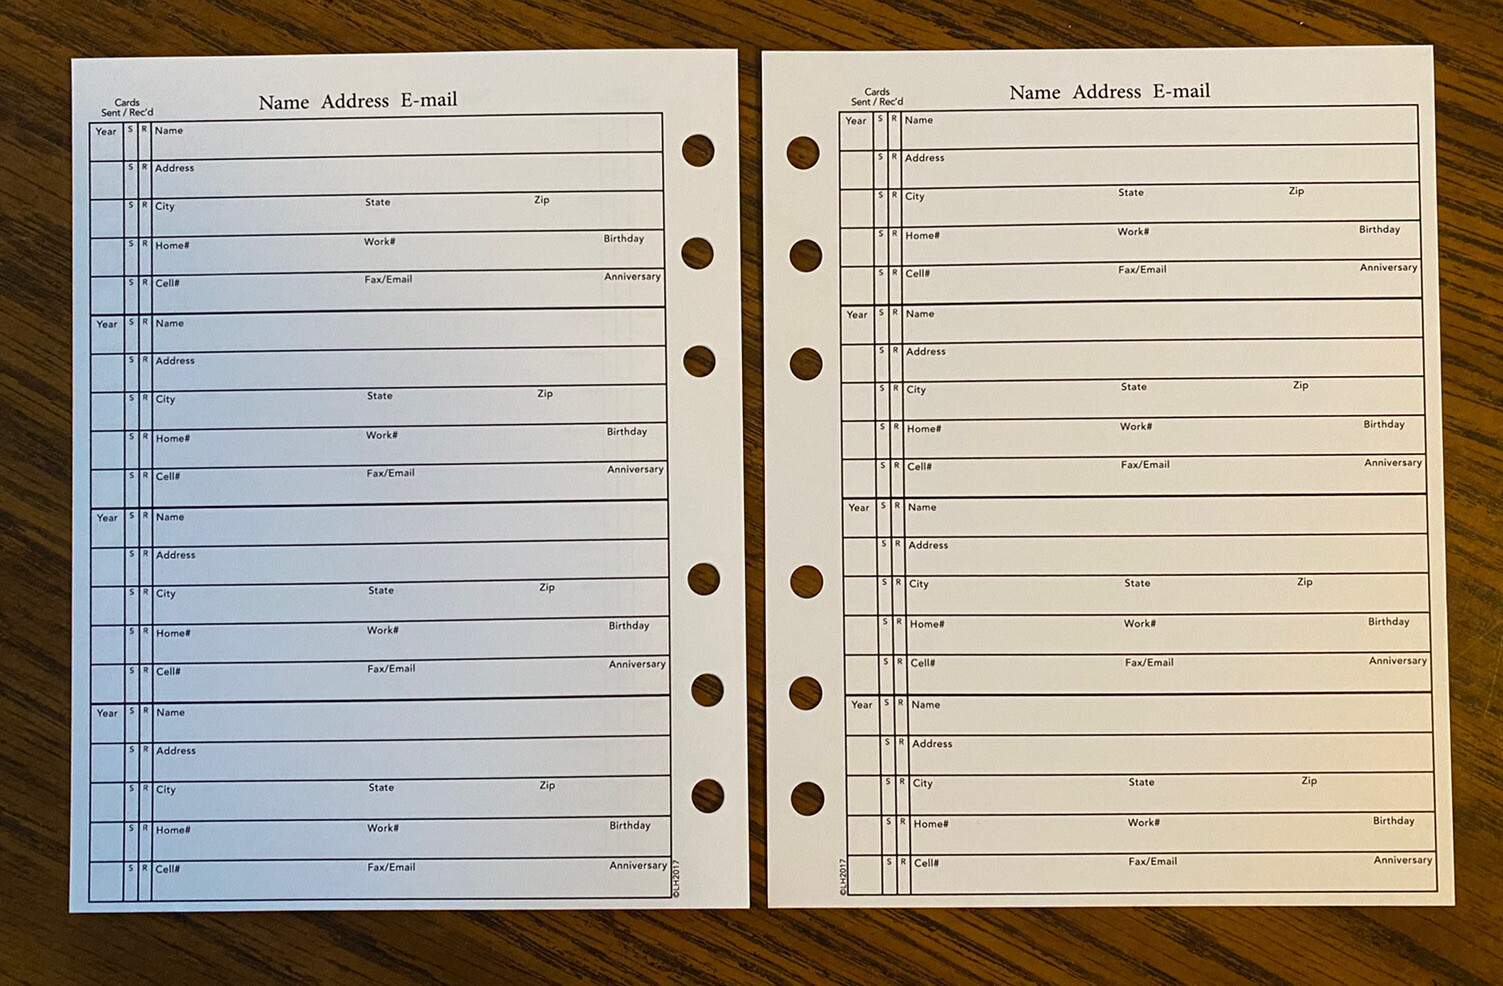 Cards
Sent / Rec'd
Name Address E-mail
Year S R Name
S R Address
S R City State Zip
S R Home# Work# Birthday
S R Cell# Fax/Email Anniversary
Year S R Name
S R Address
S R City State Zip
S R Home# Work# Birthday
S R Cell# Fax/Email Anniversary
Year S R Name
S R Address
S R City State Zip
S R Home# Work# Birthday
S R Cell# Fax/Email Anniversary
Year S R Name
S R Address
S R City State Zip
S R Home# Work# Birthday
S R Cell# Fax/Email Anniversary
©LH2017
Cards
Sent / Rec'd
Name Address E-mail
Year S R Name
S R Address
S R City State Zip
S R Home# Work# Birthday
S R Cell# Fax/Email Anniversary
Year S R Name
S R Address
S R City State Zip
S R Home# Work# Birthday
S R Cell# Fax/Email Anniversary
Year S R Name
S R Address
S R City State Zip
S R Home# Work# Birthday
S R Cell# Fax/Email Anniversary
Year S R Name
S R Address
S R City State Zip
S R Home# Work# Birthday
S R Cell# Fax/Email Anniversary
©LH2017